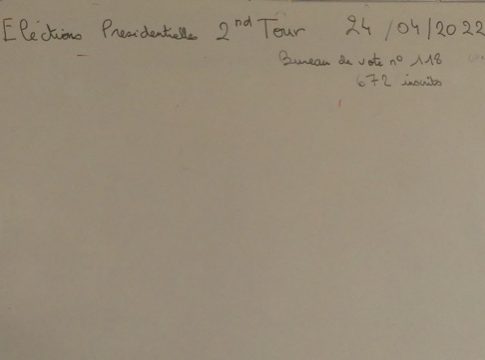 Eléctions Presidentielles 2nd Tour 24/04/2022
Bureau de vote n° 118
672 inscrits